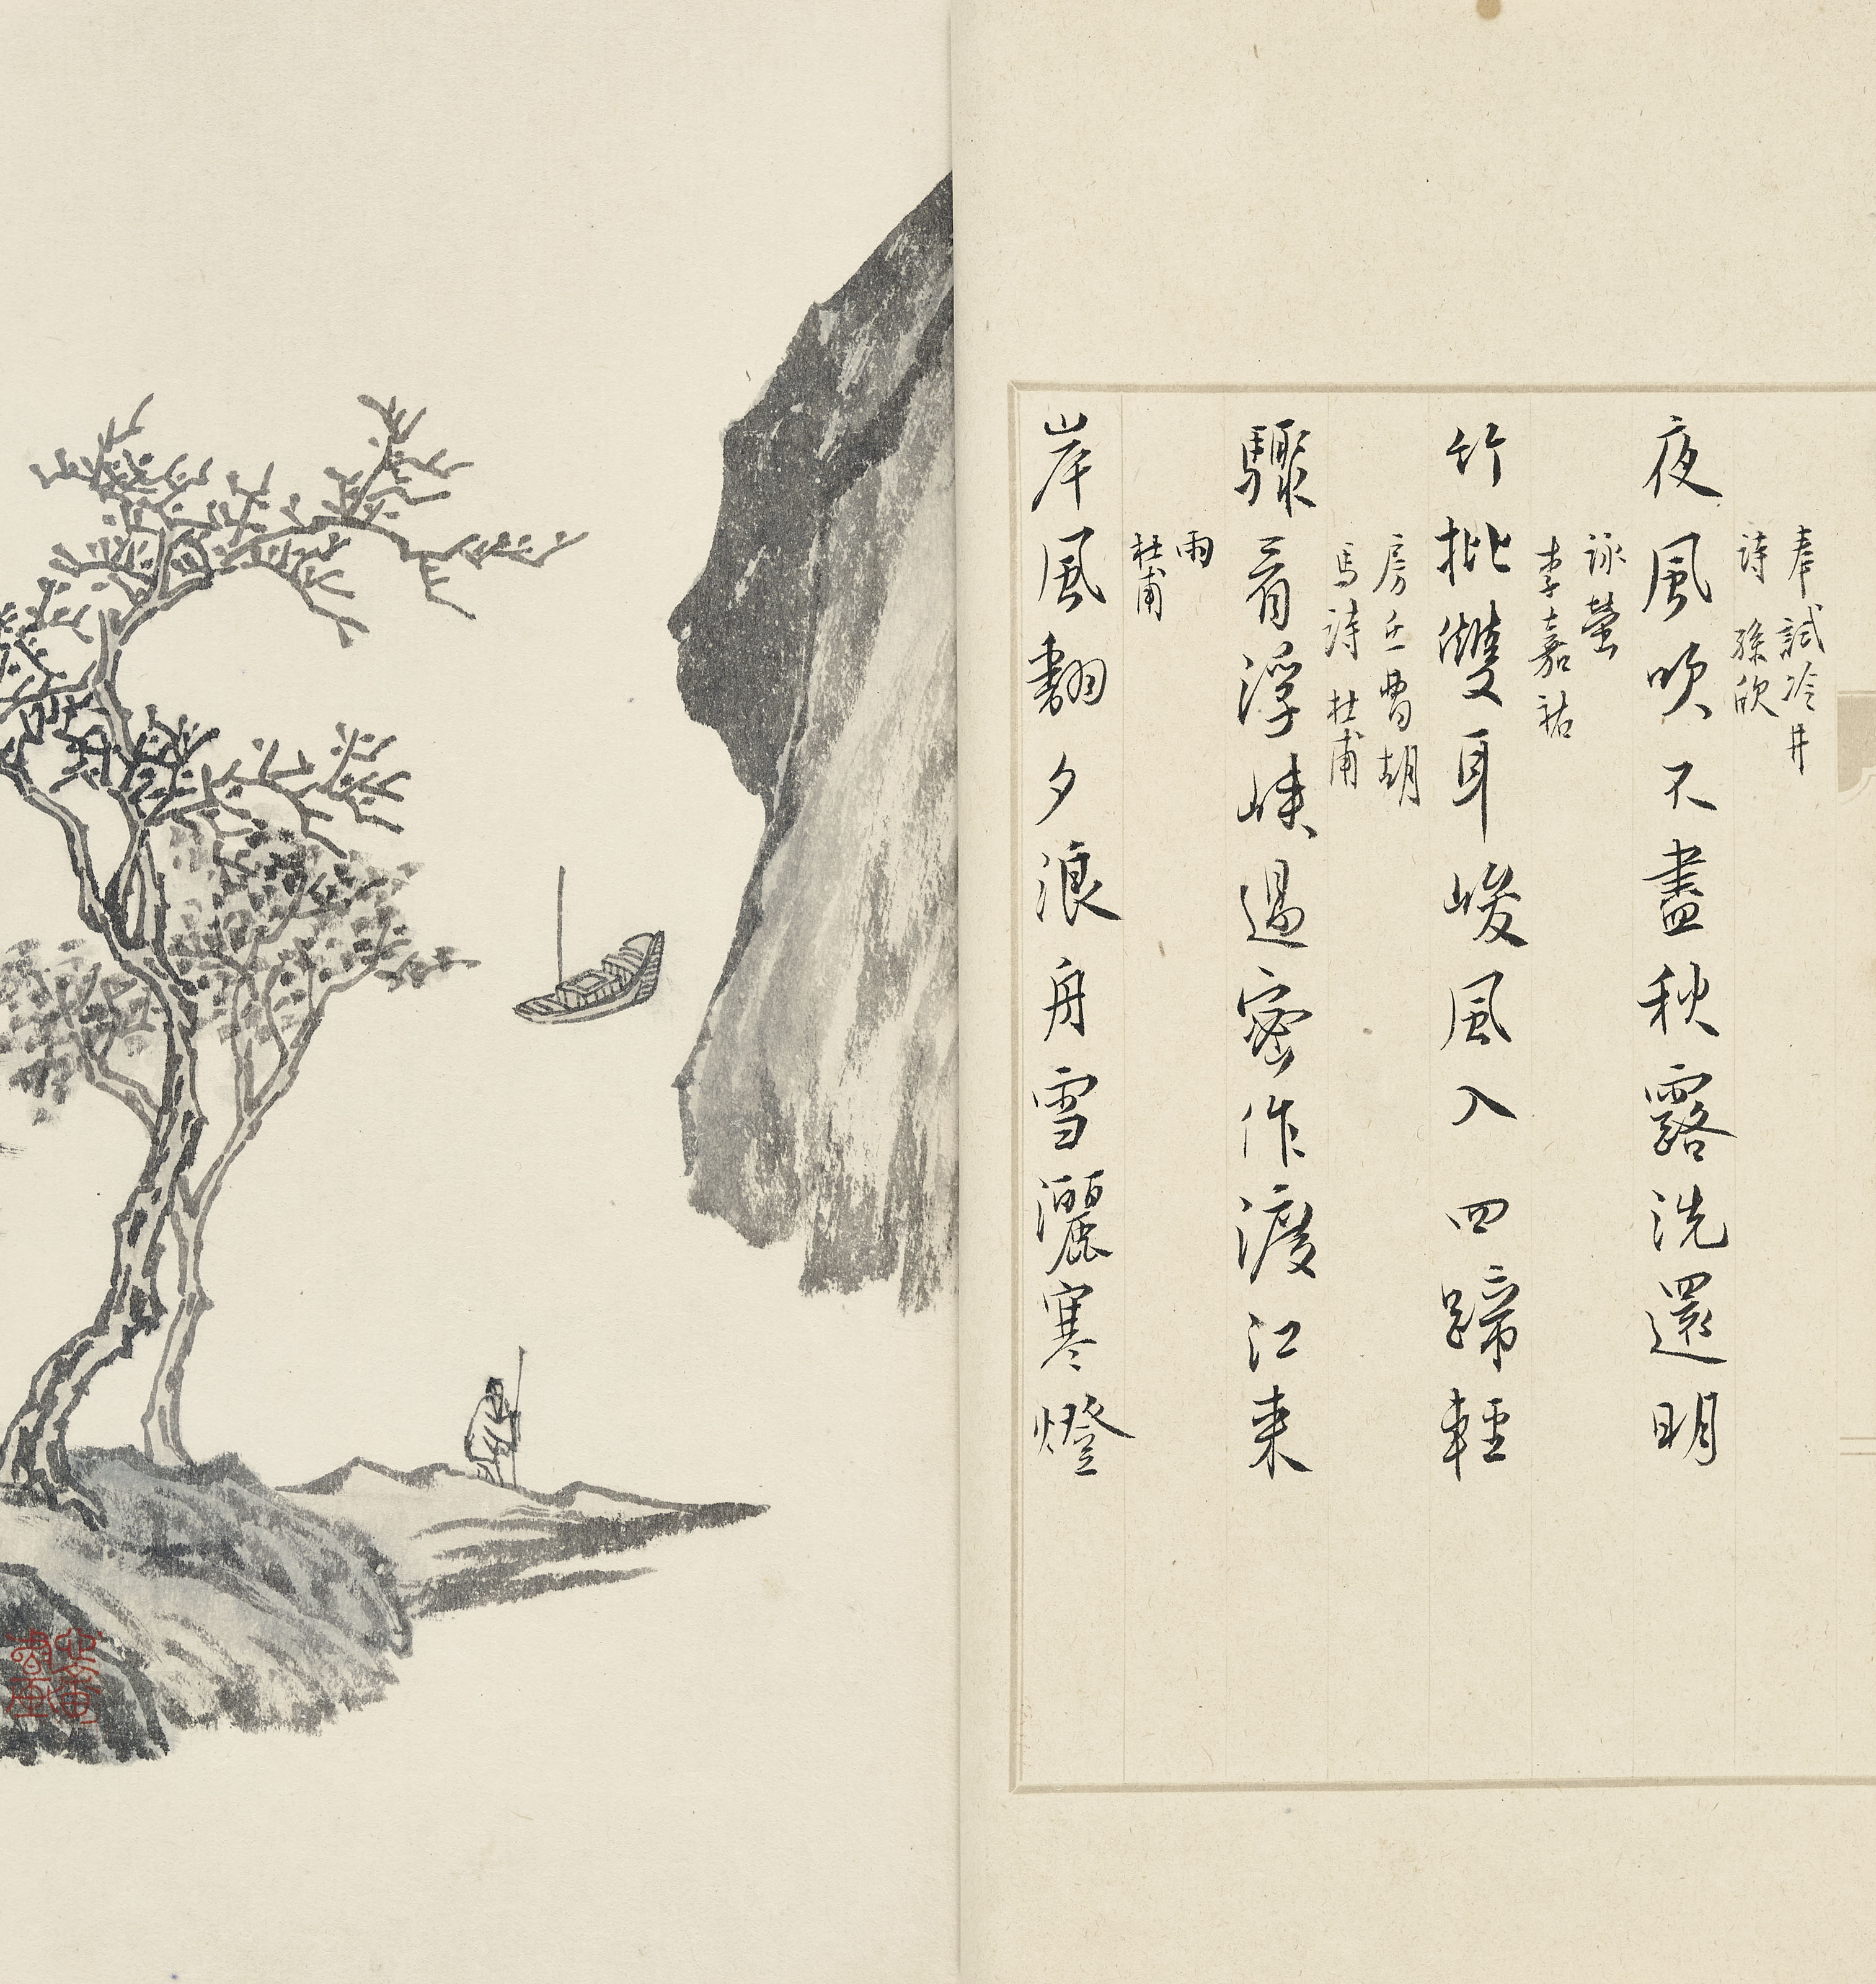 奉試冷井
詩 孫欣
夜風吹不盡秋露洗還明
詠螢
李嘉祐
竹批雙耳峻風入四蹄輕
房兵曹胡
馬詩 杜甫
驟看浮峽過密作渡江来
雨
杜甫
岸風翻夕浪舟雪灑寒燈